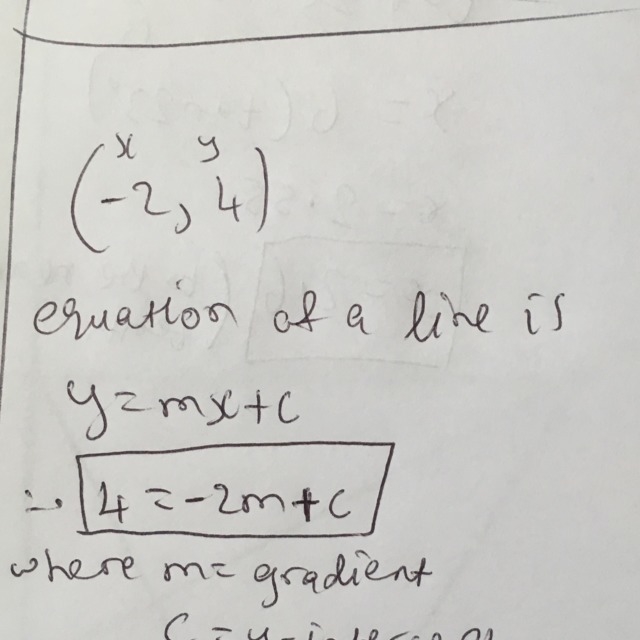 x y
(-2, 4)
equation of a line is
y=mx+c
∴ 4=-2m+c
where m= gradient
C = y-